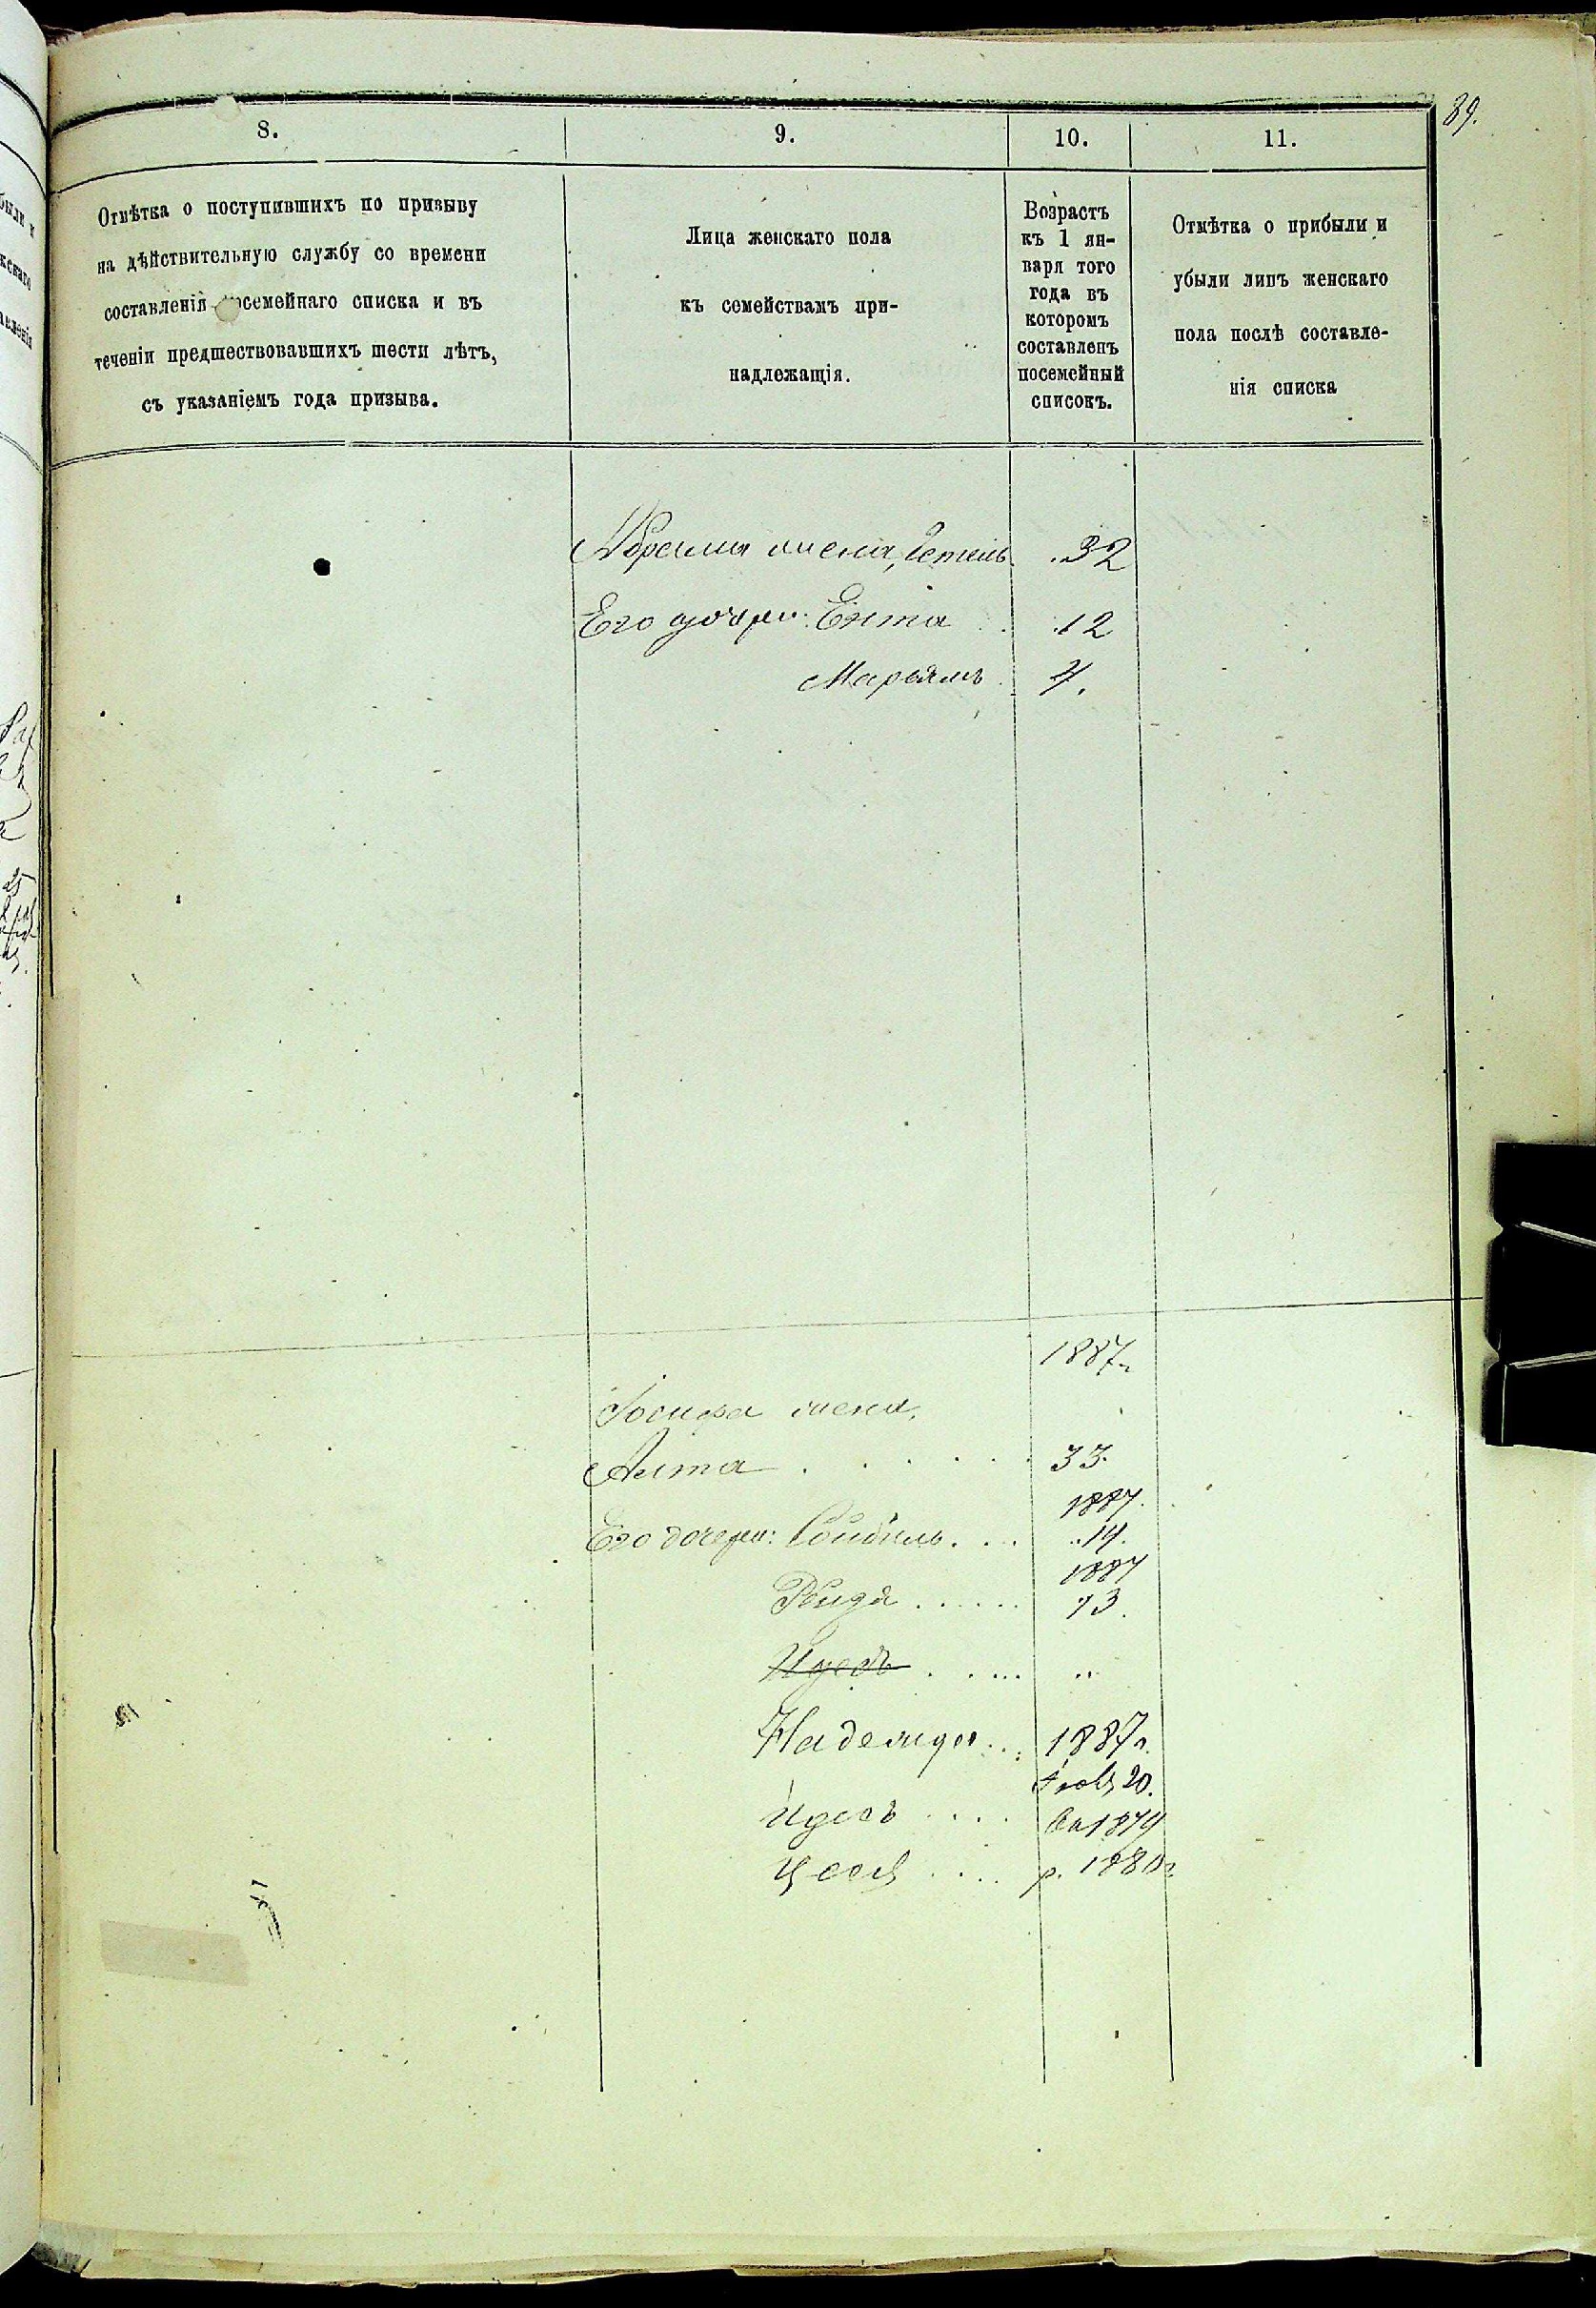 89.
8.
9.
10.
11.
Отмѣтка о поступившихъ по призыву
на дѣйствительную службу со времени
составленія посемейнаго списка и въ
теченіи предшествовавшихъ шести лѣтъ,
съ указаніемъ года призыва.
Лица женскаго пола
къ семействамъ при-
надлежащія.
Возрастъ
къ 1 ян-
варя того
года въ
которомъ
составленъ
посемейный
списокъ.
Отмѣтка о прибыли и
убыли лицъ женскаго
пола послѣ составле-
нія списка
Абрама жена, 32
Его дочери: Ента 12
Марьямъ 4.
1887г
Іосифа жена,
33.
1887.
Его дочери: 14.
1887
13.
Идесъ
Надежда 1887г.
20.
Идесъ 1879
р. 1880г